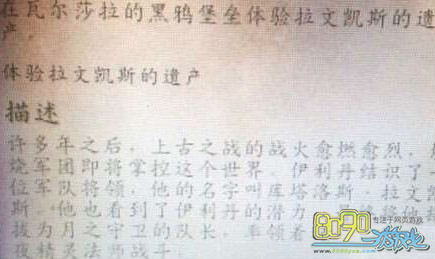 在瓦尔莎拉的黑鸦堡垒体验拉文凯斯的遗
产。
体验拉文凯斯的遗产
描述
许多年之后，上古之战的战火愈燃愈烈，
烧军团即将掌控这个世界。伊利丹结识了一
位军队将领，他的名字叫库塔洛斯·拉文凯
斯。他也看到了伊利丹的潜力，
拔为月之守卫的队长，率领着
夜精灵法师战斗
8090
专注于网页游戏
游戏